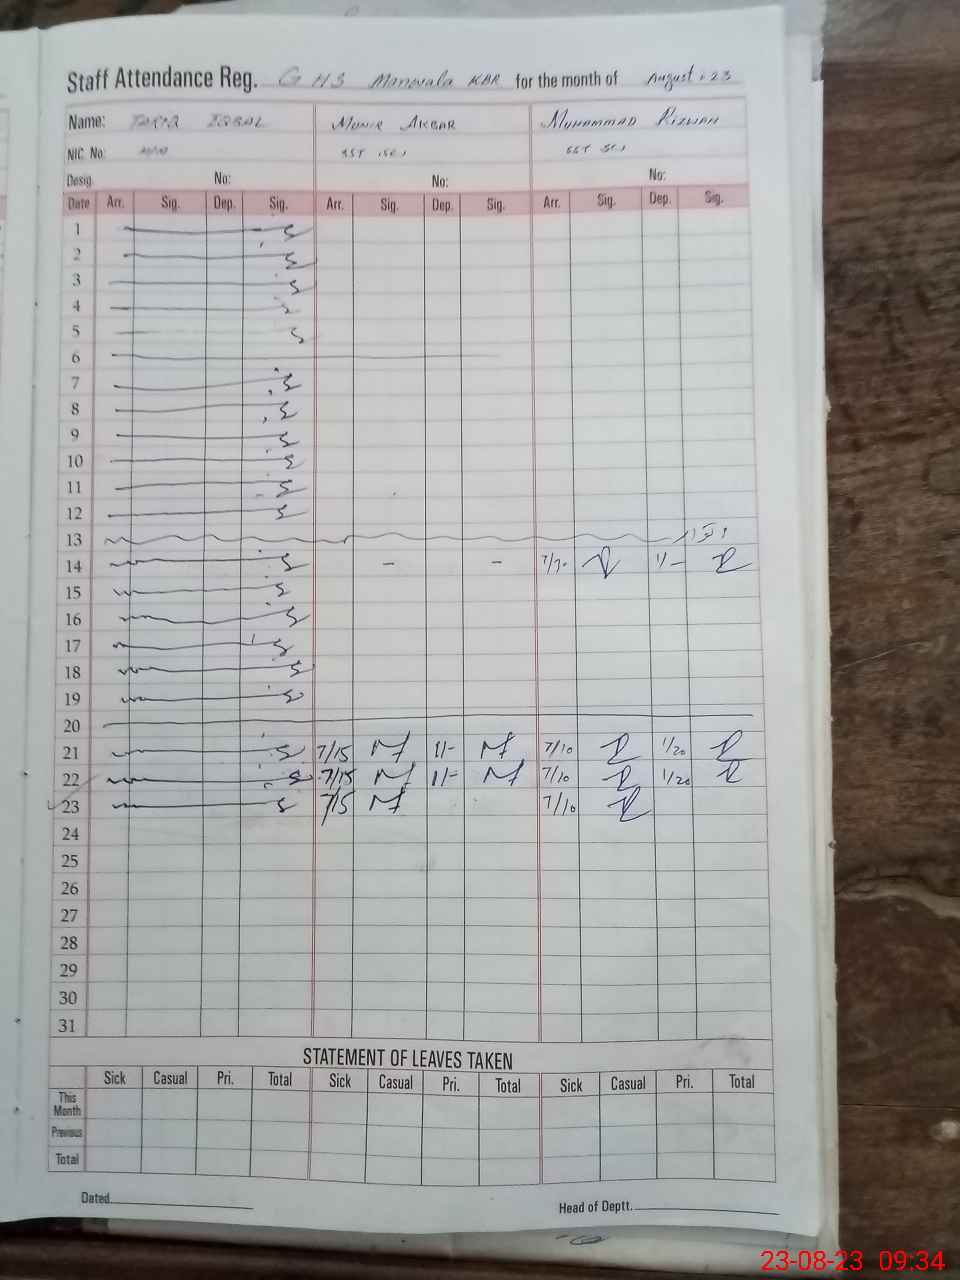 Staff Attendance Reg. G H S Manwala KBR for the month of August . 23
Name: TARIQ IQBAL MUNIR AKBAR MUHAMMAD RIZWAN
NIC. No: SST SST
Desig. No: No: No:
Date Arr. Sig. Dep. Sig. Arr. Sig. Dep. Sig. Arr. Sig. Dep. Sig.
1
2
3
4
5
6
7
8
9
10
11
12
13 اتوار
14 - - 7/70 1/-
15
16
17
18
19
20
21 7/15 1/- 7/10 1/20
22 7/15 1/- 7/10 1/20
23 7/15 7/10
24
25
26
27
28
29
30
31
STATEMENT OF LEAVES TAKEN
Sick Casual Pri. Total Sick Casual Pri. Total Sick Casual Pri. Total
This Month
Previous
Total
Dated Head of Deptt.
23-08-23 09:34